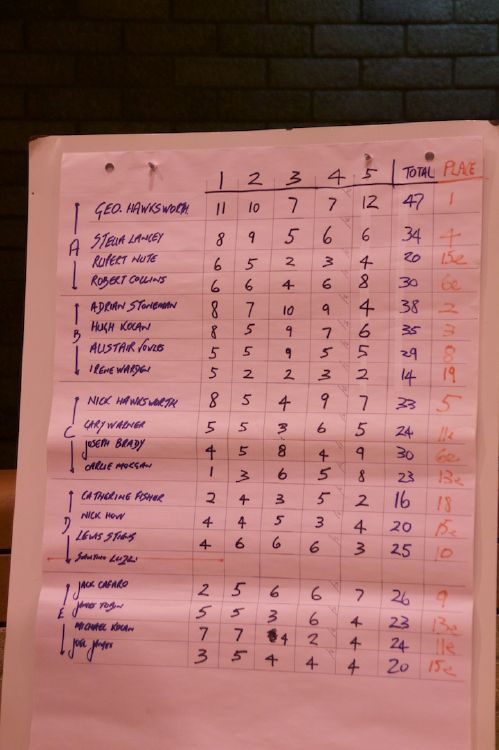 1 2 3 4 5 TOTAL PLACE
GEO. HAWKSWORTH 11 10 7 7 12 47 1
A STELLA LANCEY 8 9 5 6 6 34 4
RUPERT NUTE 6 5 2 3 4 20 15e
ROBERT COLLINS 6 6 4 6 8 30 6e
ADRIAN STONEMAN 8 7 10 9 4 38 2
B HUGH KOCAN 8 5 9 7 6 35 3
ALISTAIR VOWLES 5 5 9 5 5 29 8
IRENE WARDEN 5 2 2 3 2 14 19
NICK HAWKSWORTH 8 5 4 9 7 33 5
C CARY WARNER 5 5 3 6 5 24 11e
JOSEPH BRADY 4 5 8 4 9 30 6e
CARLIE MORGAN 1 3 6 5 8 23 13e
CATHERINE FISHER 2 4 3 5 2 16 18
D NICK HOW 4 4 5 3 4 20 15e
LEWIS 4 6 6 6 3 25 10
JACK CAFARO 2 5 6 6 7 26 9
E JAMES TOBIN 5 5 3 6 4 23 13e
MICHAEL KOCAN 7 7 4 2 4 24 11e
JOEL 3 5 4 4 4 20 15e